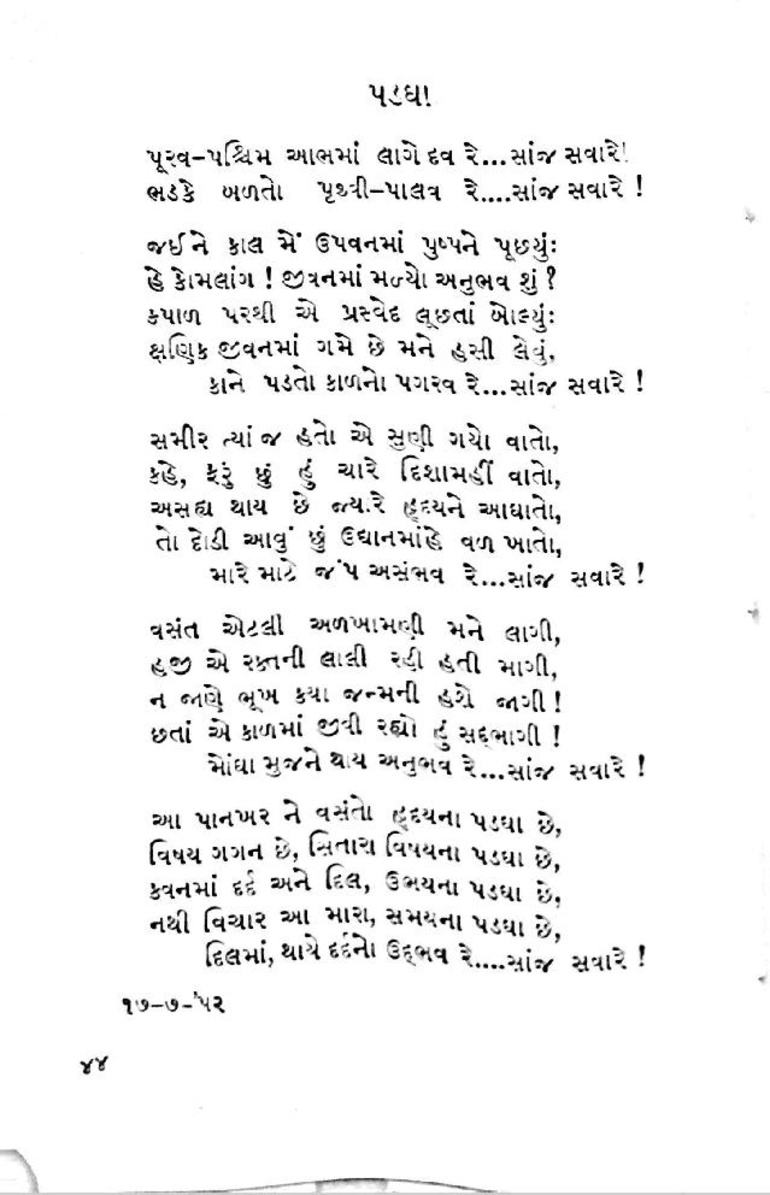 પડઘા
પૂરવ–પશ્ચિમ આભમાં લાગે દવ રે...સાંજ સવારે!
ભડકે બળતો પૃથ્વી–પાલવ રે....સાંજ સવારે !
જઈને કાલ મેં ઉપવનમાં પુષ્પને પૂછયુંઃ
હે કોમલાંગ ! જીવનમાં મળ્યો અનુભવ શું ?
કપાળ પરથી એ પ્રસ્વેદ લૂછતાં બોલ્યુંઃ
ક્ષણિક જીવનમાં ગમે છે મને હસી લેવું,
કાને પડતો કાળનો પગરવ રે...સાંજ સવારે !
સમીર ત્યાં જ હતો એ સુણી ગયો વાતો,
કહે, ફરું છું હું ચારે દિશામહીં વાતો,
અસહ્ય થાય છે જ્યારે હૃદયને આઘાતો,
તો દોડી આવું છું ઉદ્યાનમાંહે વળ ખાતો,
મારે માટે જંપ અસંભવ રે...સાંજ સવારે !
વસંત એટલી અળખામણી મને લાગી,
હજી એ રક્તની લાલી રહી હતી માગી,
ન જાણે ભૂખ કયા જન્મની હશે જાગી !
છતાં એ કાળમાં જીવી રહ્યો હું સદ્ભાગી !
મોંઘા મુજને થાય અનુભવ રે...સાંજ સવારે !
આ પાનખર ને વસંતો હૃદયના પડઘા છે,
વિષય ગગન છે, સિતારા વિષયના પડઘા છે,
કવનમાં દર્દ અને દિલ, ઉભયના પડઘા છે,
નથી વિચાર આ મારા, સમયના પડઘા છે,
દિલમાં, થાયે દર્દનો ઉદ્ભવ રે....સાંજ સવારે !
૧૭–૭–'૫૨
૪૪